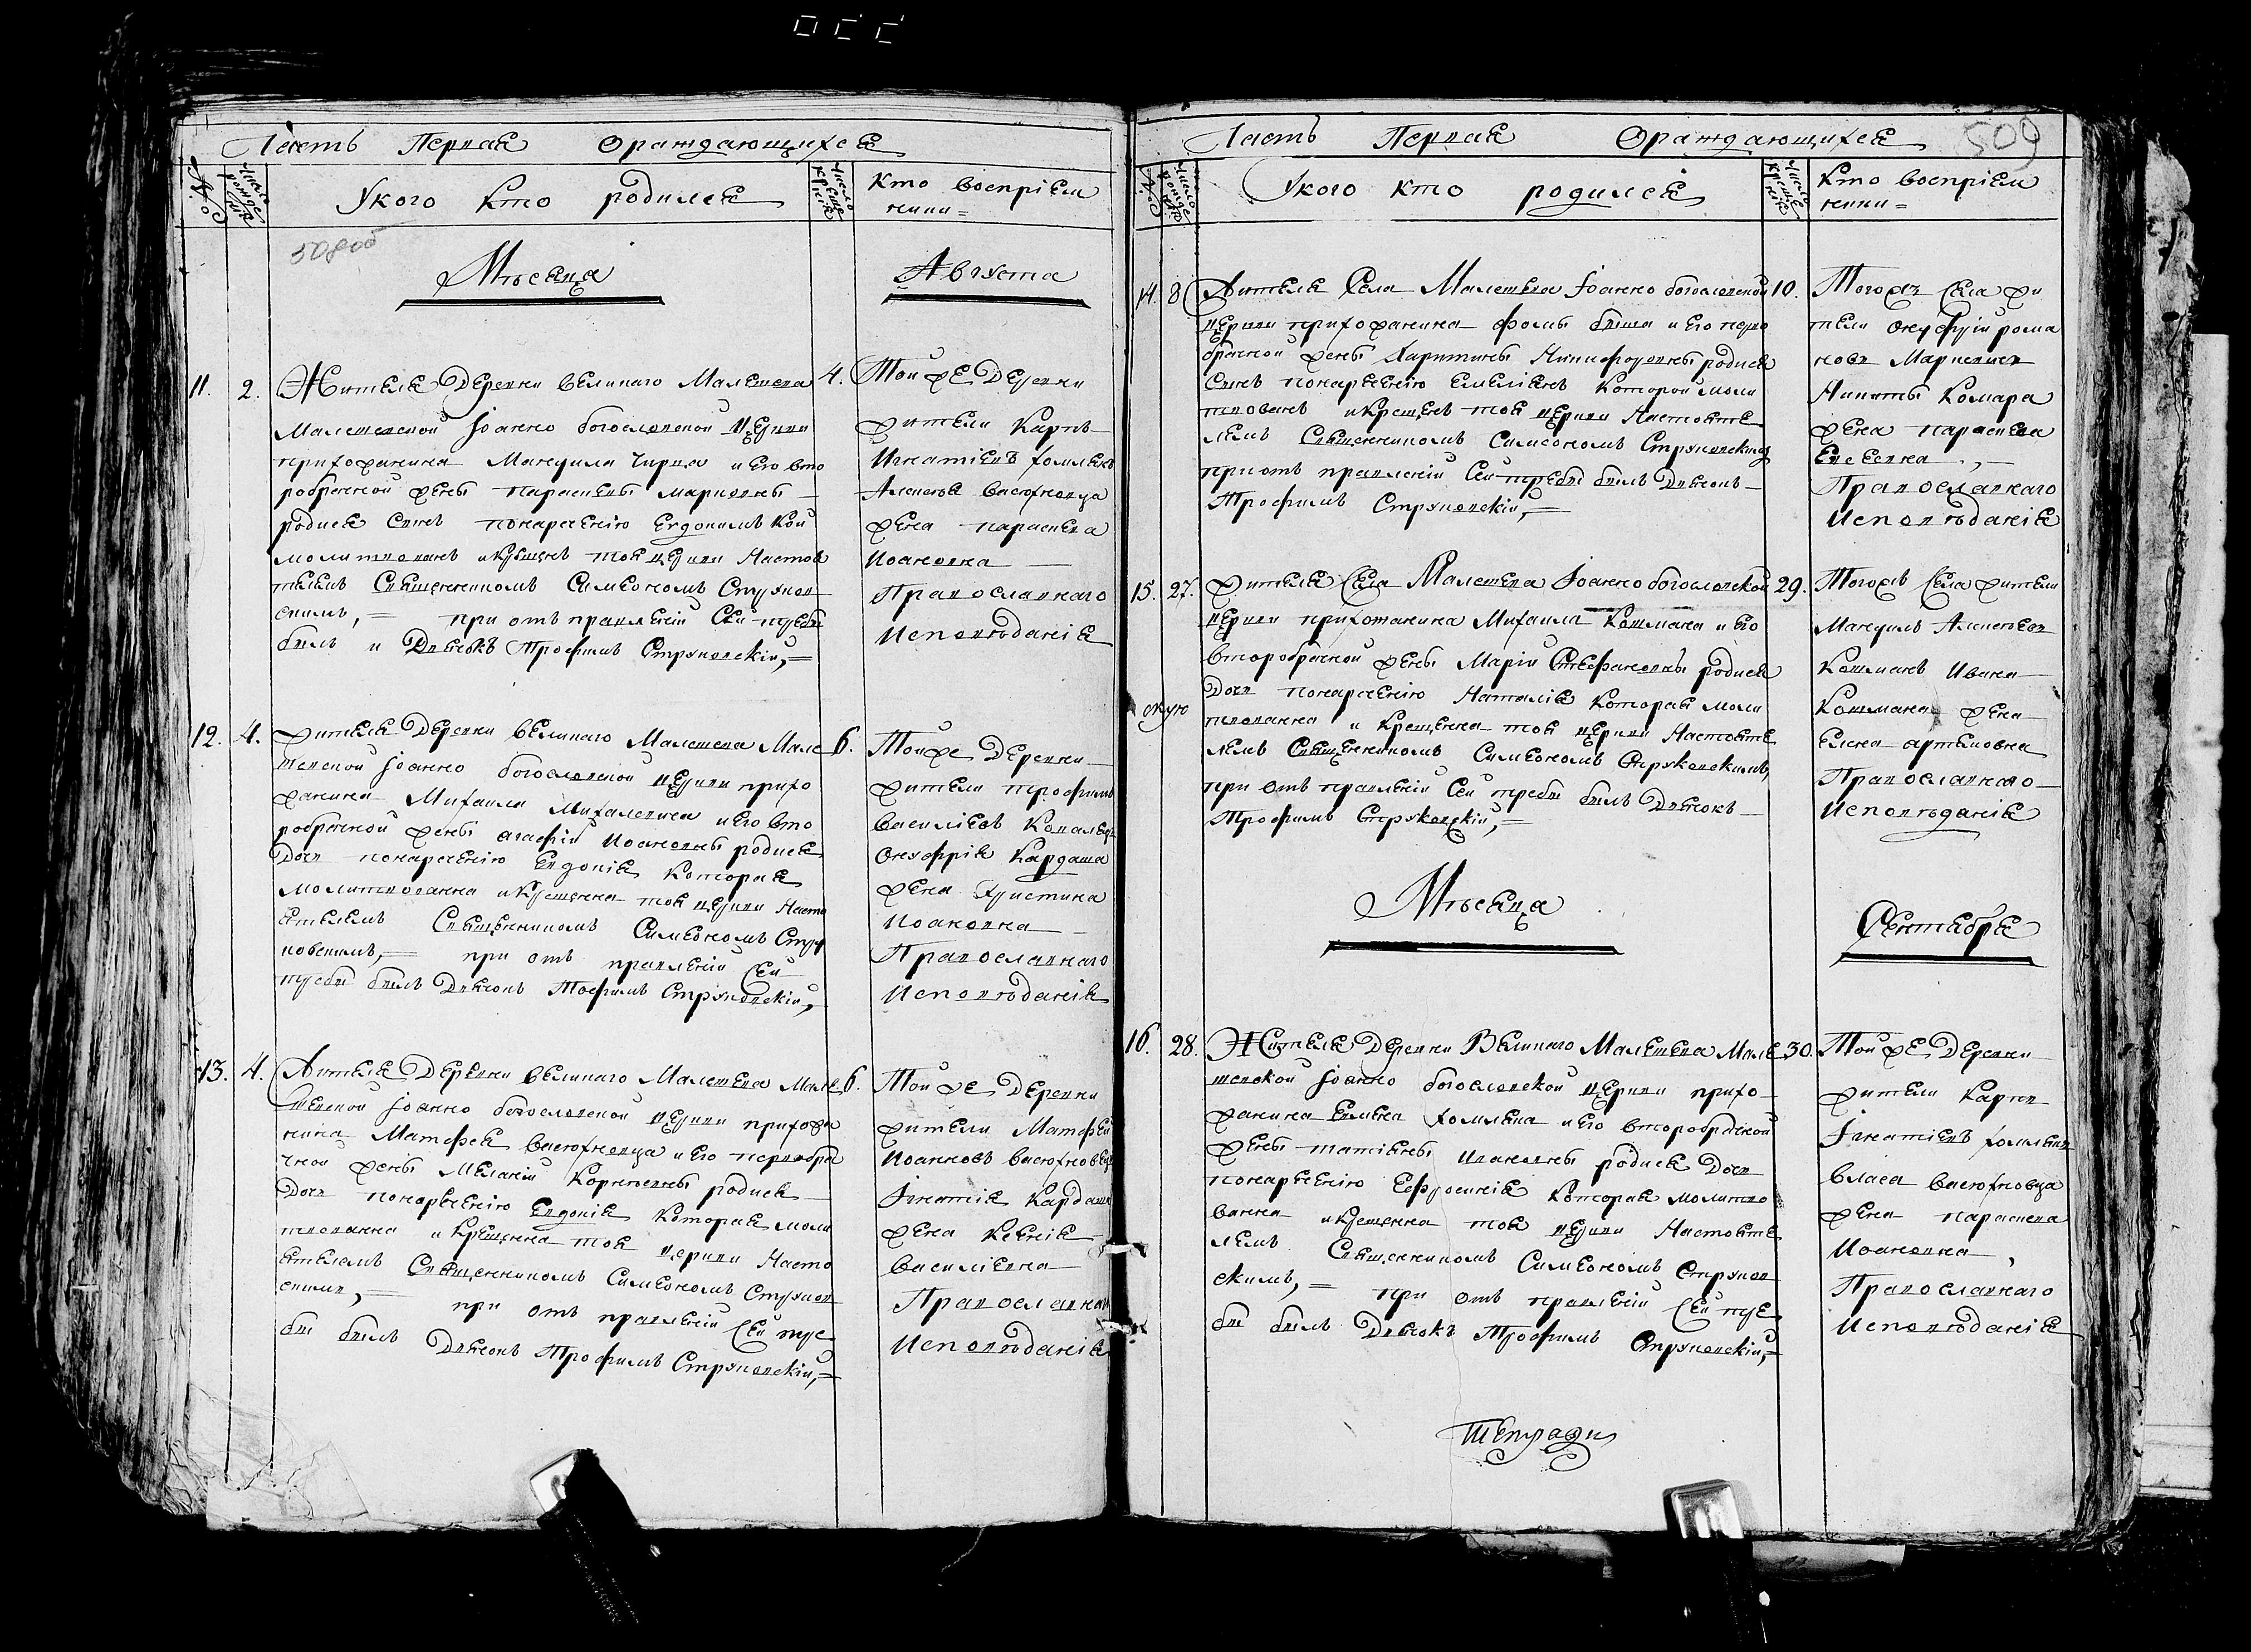 Часть Первая Ораждающихся
№
Число рожде нія
Укого Кто родился
Число креще нія
Кто воспріем
ники=
508об
Мѣсяца
Августа
11. 2.
Жителя Деревни великаго Малешева
Малешевской Іоанно богословской церкви
прихожанина Мануила Чирца и его вто
робрачной жены Параскевы Марковны
родися Сынъ понареченію Евдокимъ кой
молитвованъ икрещенъ тоя церкви Настоя
телемъ Священникомъ Симеономъ Струков
скимъ,= при отъ правленіи Сей требы
былъ и Дьячокъ Трофимъ Струковскій,=
4.
Той же Деревни
жители Карпъ
Игнатіевъ хомякъ
Алексея
жена параскева
Иоановна
Православнаго
Исповѣданія
12. 4.
жителя Деревни великаго Малешева Мале
шевской Іоанно богословской церкви прихо
жанина Михаила Михалевича и его вто
робрачной жены агафіи Иоановны родися
Дочь понареченію Евдокія которая
молитвованна икрещенна тоя церкви Насто
ятелемъ Священникомъ Симеономъ Стру
ковскимъ,= при отъ правленіи Сей
требы былъ Дьячокъ Тофимъ Струковскій,=
6.
Тойже Деревни
жители трофимъ
Василіевъ
Онуфрія Кардаша
жена Христина
Иоановна
Православнаго
Исповѣданія
13. 4.
Жителя Деревни великаго Малешева Мале
шевской Іоанно богословской церкви прихожа
нина Матфея и его первобра
чной жены Меланіи родися
Дочь понареченію Евдокія которая моли
твованна и Крещенна тоя церкви Насто
ятелемъ Священникомъ Симеономъ Струков
скимъ,= при отъ правленіи Сей тре
бы былъ Дьячокъ Трофимъ Струковскій,=
6.
Той же Деревни
жители Матфей
Иоанновъ
Ігнатія Кардаша
жена Ксенія
Василіевна
Православнаго
Исповѣданія
Часть Первая Ораждающихся
509
№
Число рожде нія
Укого кто родился
Число креще нія
Кто воспріем
ники=
14. 8
Жителя Села Малешева Іоанно богословской
церкви прихожанина Фомы и его перво
брачной жены Харитины Никифоровны родися
Сынъ понареченію Емеліянъ которой моли
твованъ икрещенъ тоя церкви Настояте
лемъ Священникомъ Симеономъ Струковскимъ
при отъ правленіи Сей требы былъ Дьячокъ
Трофимъ Струковскій,=
10.
Тогожъ Села жи
тели Онуфрій рома
новъ
Никиты Комара
жена параскева
Православнаго
Исповѣданія
15. 27.
жителя Села Малешева Іоанно богословской
церкви прихожанина Михаила Кошмана и его
второбрачной жены Маріи Стефановны родися
Дочь понареченію Наталія которая моли
твованна и Крещенна тоя церкви Настояте
лемъ Священникомъ Симеономъ Струковскимъ
при отъ правленіи Сей требы былъ Дьячокъ
Трофимъ Струковскій,=
29.
Тогожъ Села жители
Мануилъ Алексеевъ
Кошманъ Ивана
Кошмана жена
Елена артемовна
Православнаго
Исповѣданія
Мѣсяца
Сентября
16. 28.
Жителя Деревни Великаго Малешева Мале
шевской Іоанно богословской церкви прихо
жанина хомяка и его второбрачной
жены татіяны Ивановны родися Дочь
понареченію Ефросинія которая молитво
ванна икрещенна тоя церкви Настояте
лемъ Священникомъ Симеономъ Струков
скимъ,= при отъ правленіи Сей тре
бы былъ Дьячокъ Трофимъ Струковскій,=
30.
Той же Деревни
жители Карпъ
Ігнатіевъ хомякъ
Власа
жена параскева
Иоановна
Православнаго
Исповѣданія